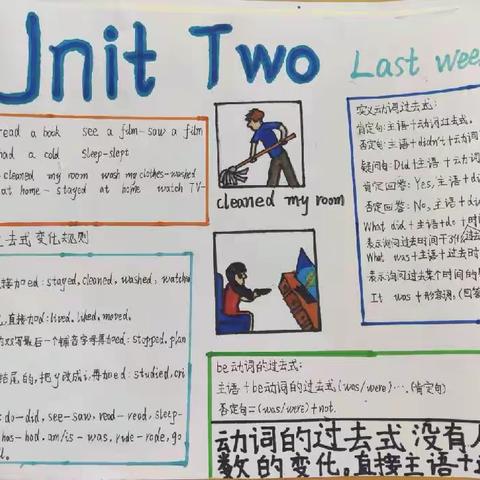 Unit Two
Last wee
read a book see a film-saw a film
had a cold sleep-slept
cleaned my room wash my clothes-washed
at home- stayed at home watch TV-
去式变化规则
接加ed: stayed, cleaned, washed, watche
直接加d: lived, liked, moved.
双写最后一个辅音字母再加ed: stopped, plan
结尾的,把y改成i,再加ed: studied, cri
do-did, see-saw, read-read, sleep-
has-had. am/is-was, ride-rode, go
cleaned my room
实义动词过去式:
肯定句:主语+动词过去式.
否定句:主语+didn't+动词
疑问句:Did+主语+动词
肯定回答: Yes, 主语+di
否定回答: No, 主语+di
What did +主语+do +
表示询问过去时间干了什么
What was +主语+过去时
表示询问过去某个时间的
It was +形容词.(回答
be动词的过去式:
主语+be动词的过去式(was/were)….(肯定句)
否定句=(was/were)+not.
动词的过去式没有人
数的变化。直接主语+